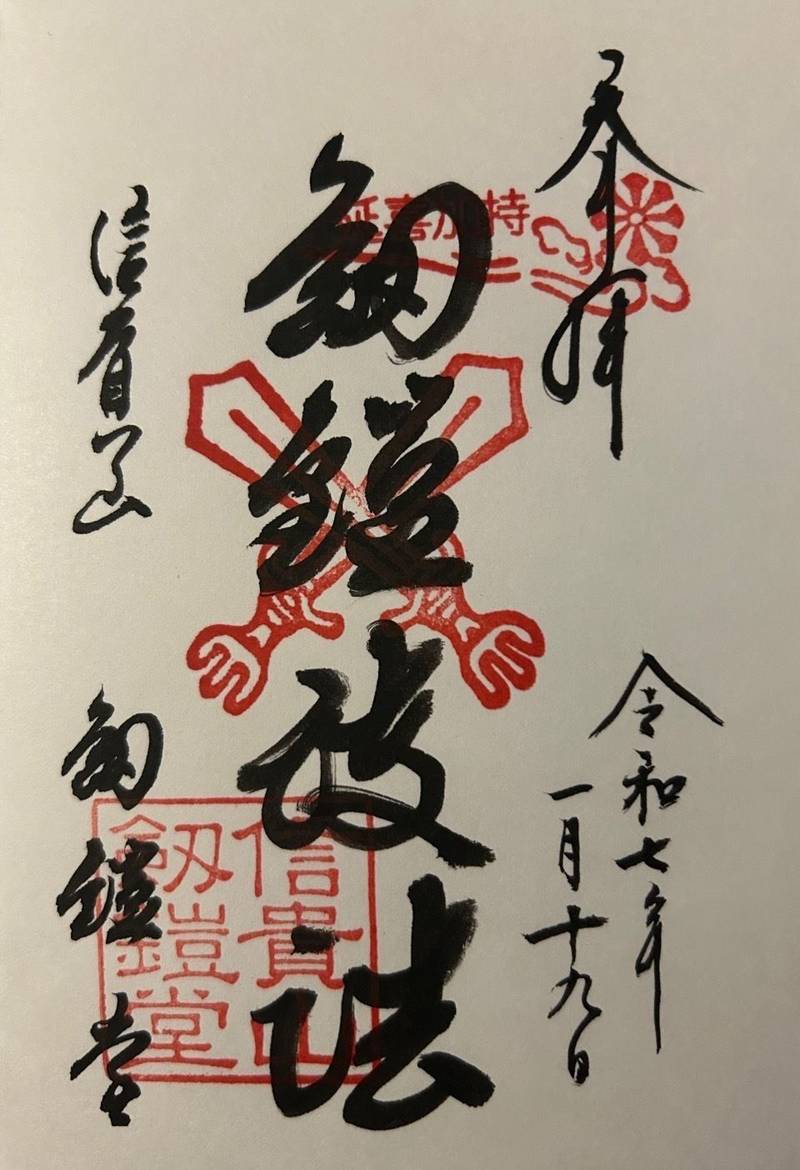 奉拝
延喜加持
令和七年
一月十九日
剱鎧護法
信貴山
剱鎧堂
信貴山
剱鎧堂